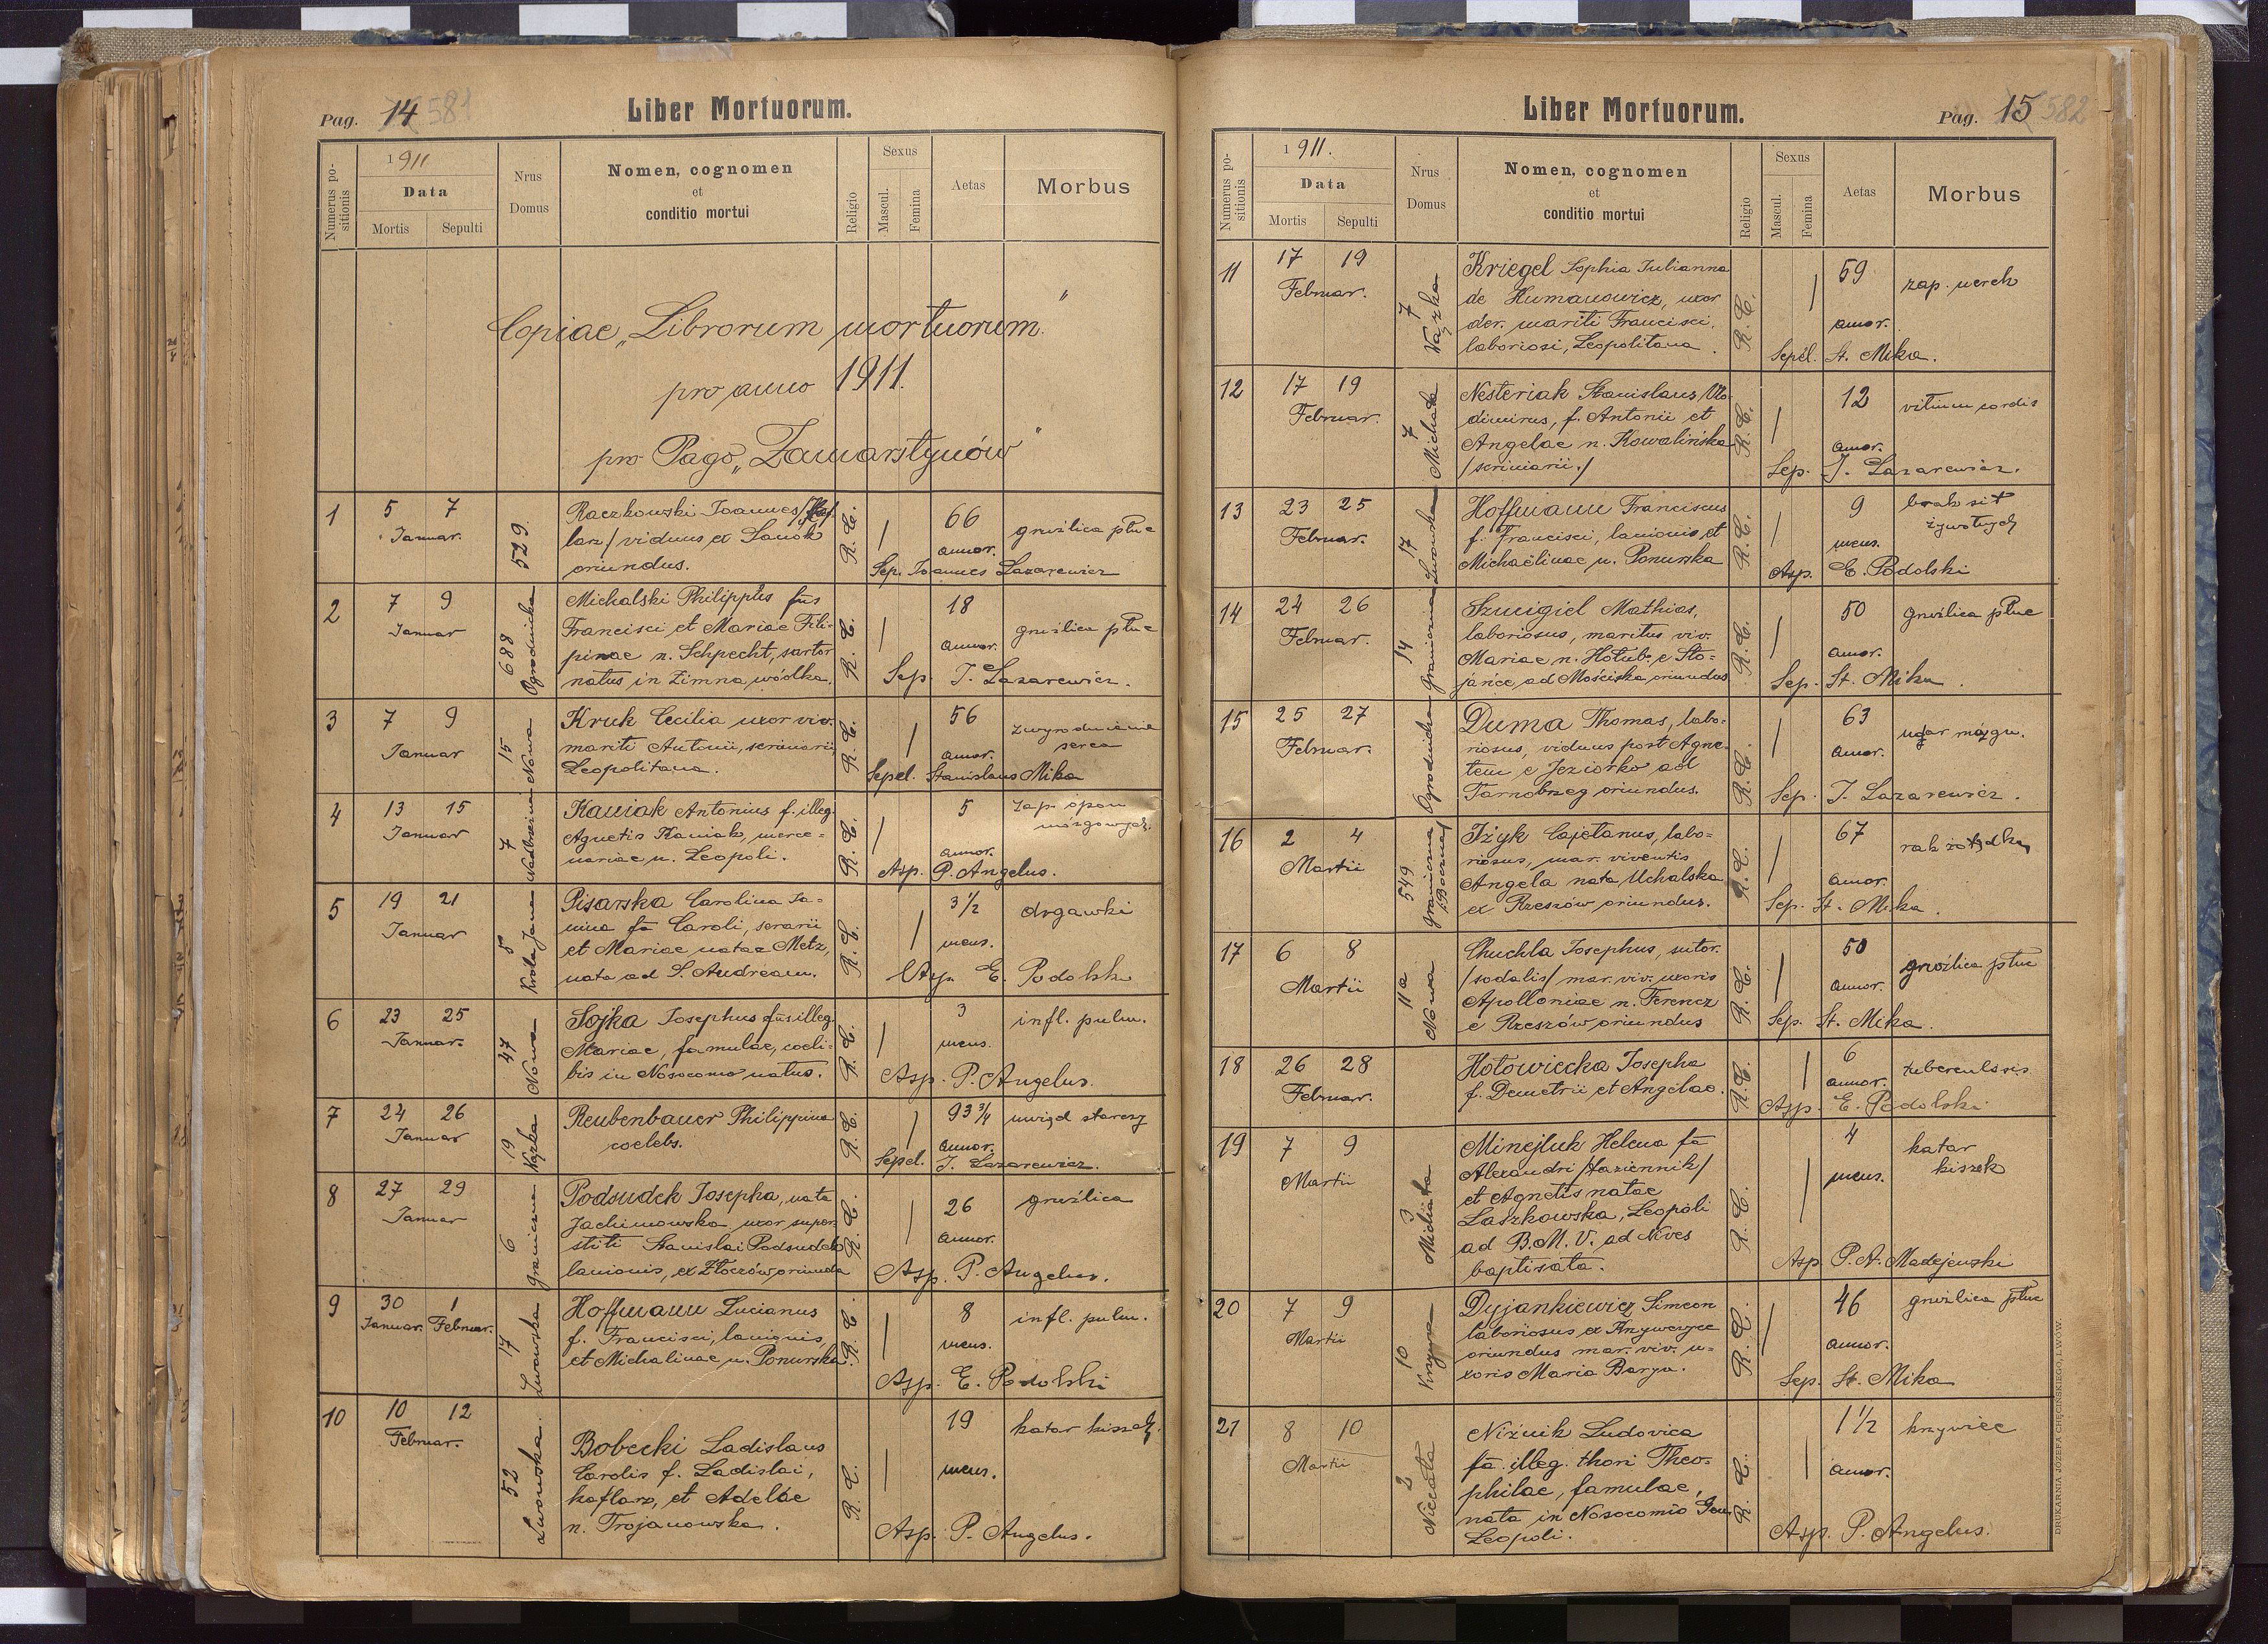 Pag. 14 581
Liber Mortuorum.
Numerus positionis
1911
Data
Mortis
Sepulti
Nrus
Domus
Nomen, cognomen
et
conditio mortui
Religio
Sexus
Mascul.
Femina
Aetas
Morbus
Copiae „Librorum mortuorum"
pro anno 1911.
pro Pago „Zamarstynów"
1
5 7
Januar.
529
Raczkowski Joannes
larz/ viduus ex Sanok
oriundus.
R. C.
66
annor.
gruźlica płuc
Sep. Joannes Lazarewicz
2
7 9
Januar
688
Ogrodnicka
Michalski Philippus fus
Francisci et Mariae Fili-
pinae n. Schpecht, sartor
natus in Zimna wódka.
R. C.
18
annor.
gruźlica płuc
Sep J. Lazarewicz.
3
7 9
Januar
15
Nowa
Kruk Cecilia uxor viv.
mariti Antonii, scriniarii
Leopolitana.
R. C.
56
annor.
zwyrodnienie
serca
Sepel. Stanislaus Mika
4
13 15
Januar
7
Kaniak Antonius f. illeg.
Agnetis Kaniak, merce-
nariae n. Leopoli.
R. C.
5
annor.
Zap. opon
mózgowych.
Asp. P. Angelus.
5
19 21
Januar
8
Króla Jana
Pisarska Carolina Ja-
nina fa Caroli, serarii
et Mariae natae Metz,
nata ad S. Andream.
R. C.
3½
mens.
drgawki
Asp. E. Podolski
6
23 25
Januar.
47
Nowa
Sojka Josephus fus illeg.
Mariae, famulae, coeli-
bis in Nosocomo natus.
R. C.
3
mens.
infl. pulm.
Asp. P. Angelus.
7
24 26
Januar
19
Reubenbauer Philippina
coelebs.
R. C.
93¾
annor.
uwiąd starczy
Sepel. J. Lazarewicz.
8
27 29
Januar
6
Graniczna
Podsudek Josepha, nata
Jachimowska uxor super-
stiti Stanislai Podsudek
lanionis, ex Złoczów oriunda
R. C.
26
annor.
gruźlica
Asp. P. Angelus.
9
30 1
Januar. Februar.
17
Lwowska
Hoffmann Lucianus
f. Francisci, lanionis,
et Michalinae n. Ponurska.
R. C.
8
mens.
infl. pulm.
Asp. E. Podolski
10
10 12
Februar.
52
Lwowska.
Bobecki Ladislaus
Carolis f. Ladislai,
kaflarz, et Adelae
n. Trojanowska.
R. C.
19
mens.
katar kiszek.
Asp. P. Angelus.
Liber Mortuorum.
Pag. 15 582
Numerus positionis
1911.
Data
Mortis
Sepulti
Nrus
Domus
Nomen, cognomen
et
conditio mortui
Religio
Sexus
Mascul.
Femina
Aetas
Morbus
11
17 19
Februar.
7
Wązka
Kriegel Sophia Julianna
de Humanowicz, uxor
der. mariti Francisci,
laboriosi, Leopolitana.
R. C.
59
annor.
zap. nerek
Sepel. St. Mika.
12
17 19
Februar.
7
Michała
Nesteriak Stanislaus Wlo-
dimirus, f. Antonii et
Angelae n. Kowalińska
/scriniarii./
R. C.
12
annor.
vitium cordis
Sep. J. Lazarewicz.
13
23 25
Februar.
17
Lwowska
Hoffmann Franciscus
f. Francisci, lanionis et
Michaelinae n. Ponurska
R. C.
9
mens.
brak sił
żywotnych
Asp. E. Podolski
14
24 26
Februar.
14
Graniczna
Szmigiel Mathias,
laboriosus, maritus viv.
Mariae n. Hołub. e Sto-
jańce, ad Mościska oriundus
R. C.
50
annor.
gruźlica płuc
Sep. St. Mika.
15
25 27
Februar.
Ogrodnicka
Duma Thomas, labo-
riosus, viduus post Agne-
tem e Jeziorko ad
Tarnobrzeg oriundus.
R. C.
63
annor.
udar mózgu.
Sep. J. Lazarewicz.
16
2 4
Martii
549
Graniczna
/Boczna/
Iżyk Cajetanus, labo-
riosus, mar. viventis
Angela nata Uchalska
ex Rzeszów oriundus.
R. C.
67
annor.
rak żołądka
Sep. St. Mika.
17
6 8
Martii
11a
Nowa
Chuchla Josephus, sutor.
/sodalis/ mar. viv. uxoris
Apolloniae n. Ferencz
e Rzeszów oriundus
R. C.
50
annor.
gruźlica płuc
Sep. St. Mika.
18
26 28
Februar.
Hołowiecka Josepha
f. Demetrii et Angelae.
R. C.
6
annor.
tuberculosis
Asp. E. Podolski
19
7 9
Martii
3
Michała
Minejluk Helena fa
Alexandri /łaziennik/
et Agnetis natae
Laszkowska, Leopoli
ad B. M. V. ad Nives
baptisata.
R. C.
4
mens.
katar
kiszek
Asp. P. A. Madejewski
20
7 9
Martii
10
Krzywa
Dyjankiewicz Simeon
laboriosus ex Krzywczyce
oriundus mar. viv. u-
xoris Maria Barya.
R. C.
46
annor.
gruźlica płuc
Sep. St. Mika
21
8 10
Martii
2
Niżnik Ludovica
fa. illeg. thori Theo-
philae, famulae,
nata in Nosocomio Gen.
Leopoli.
R. C.
1½
annor.
krzywiec
Asp. P. Angelus.
DRUKARNIA JÓZEFA CHĘCIŃSKIEGO, LWÓW.